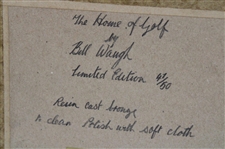 The Home of Golf
by
Bill Waugh
Limited Edition /50
Resin cast bronze
to clean Polish with soft cloth